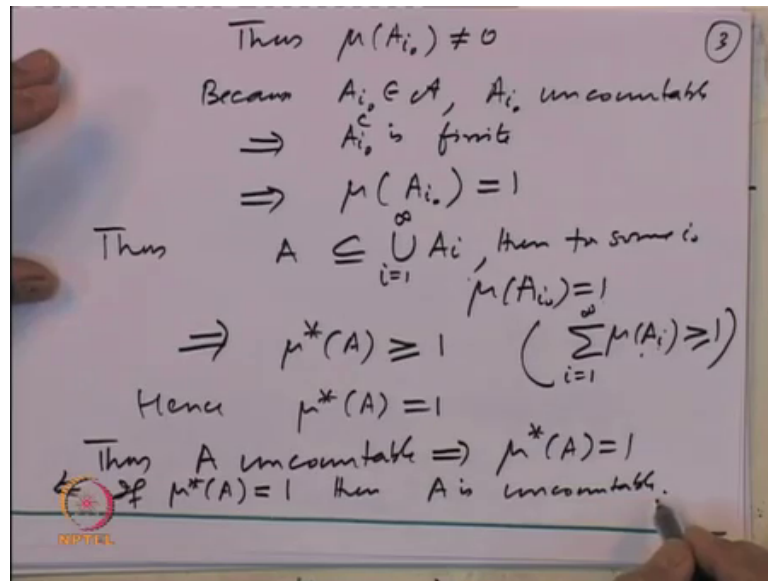 3
Thus μ(A_{i₀}) ≠ 0
Because A_{i₀} ∈ 𝒜, A_{i₀} uncountable
⟹ A_{i₀}^c is finite
⟹ μ(A_{i₀}) = 1
Thus A ⊆ ⋃_{i=1}^∞ A_i, then for some i₀
μ(A_{i₀}) = 1
⟹ μ*(A) ≥ 1 (∑_{i=1}^∞ μ(A_i) ≥ 1)
Hence μ*(A) = 1
Thus A uncountable ⟹ μ*(A) = 1
⇐ If μ*(A) = 1 then A is uncountable.
NPTEL